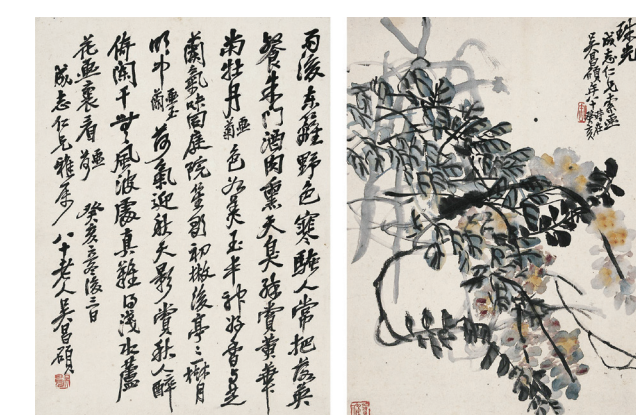 雨後東籬野色寒騷人常把落英
餐朱門酒肉熏天臭賞黃華
牡丹畫菊色如美玉丰神好香與芝
蘭氣味同庭院笙歌初撤後亭亭一樹月
明中畫玉蘭荷氣迎秋天影賞秋人醉
倚闌干無風波處真難得淺水蘆
花畫裏看畫荷癸亥立冬後三日
成志仁兄雅屬八十老人吳昌碩
珠光
成志仁兄索畫時在癸亥
吳昌碩年八十